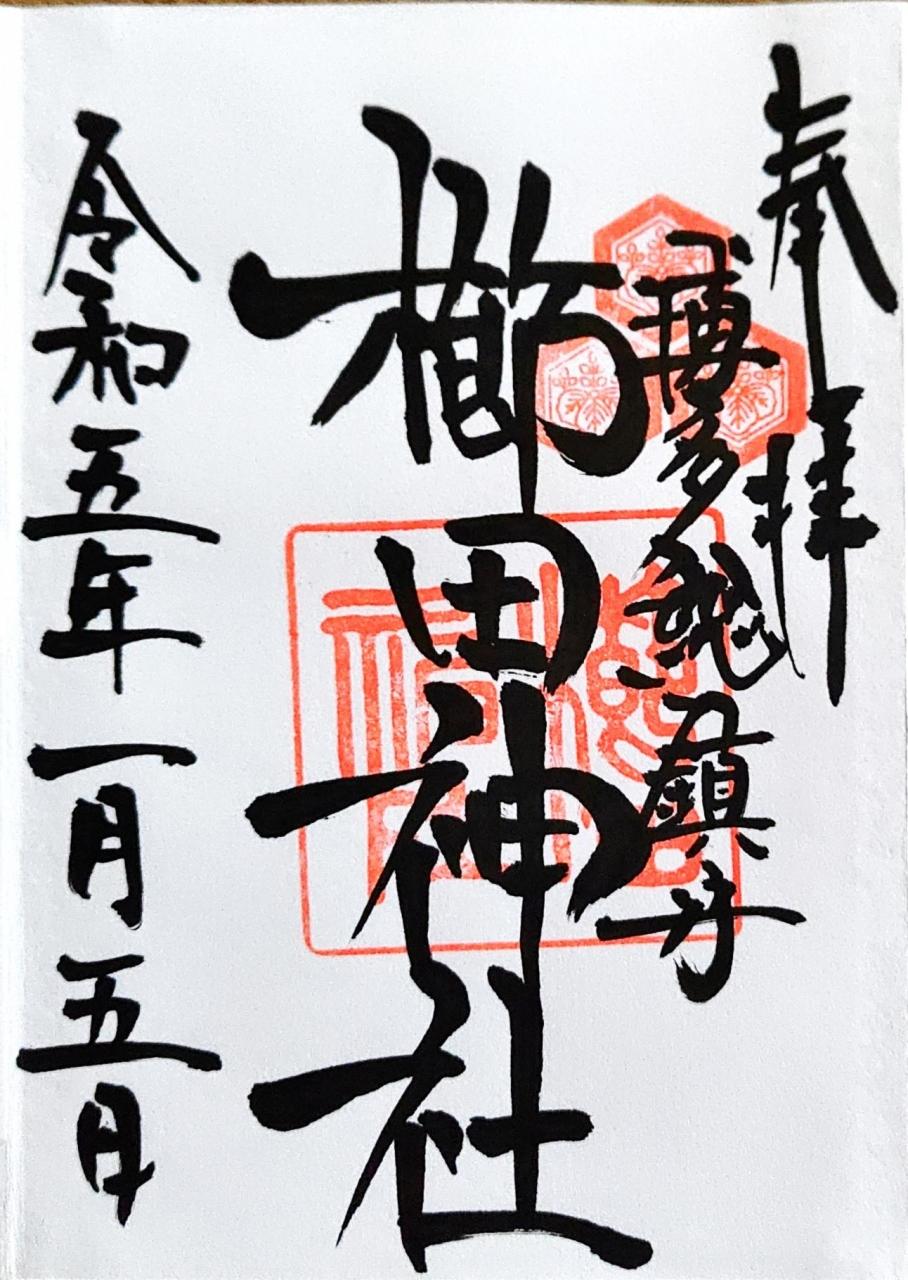 奉拝
博多総鎮守
櫛田神社
令和五年一月五日